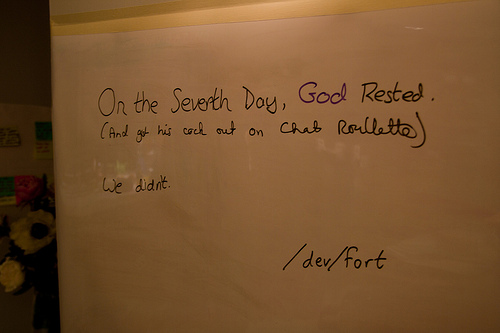 On the Seventh Day, God Rested.
(And got his cock out on Chat Roullette)
We didn't.
/dev/fort